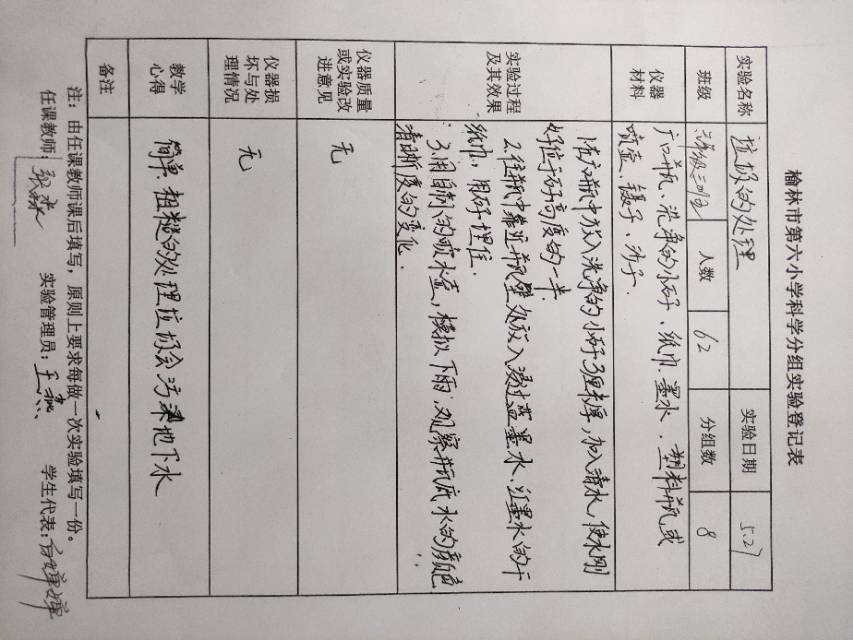 榆林市第六小学科学分组实验登记表
实验名称 垃圾的处理 实验日期 5.27
班级 三班 人数 62 分组数 8
仪器材料 广口瓶、洗净的小石子、纸巾、墨水、塑料瓶或
喷壶、镊子、沙子.
实验过程及其效果 1.在广口瓶中放入洗净的小石子3厘米厚,加入清水,使水刚
好位于石子高度的一半.
2.往瓶中靠近瓶壁处放入浸过蓝墨水、红墨水的干
纸巾,用石子埋住.
3.用自制的喷水壶,模拟下雨,观察瓶底水的颜色
清晰度的变化.
仪器质量或实验改进意见 无
仪器损坏与处理情况 无
教学心得 简单粗糙的处理垃圾会污染地下水
备注
注:由任课教师课后填写,原则上要求每做一次实验填写一份。
任课教师: 实验管理员:王 学生代表: